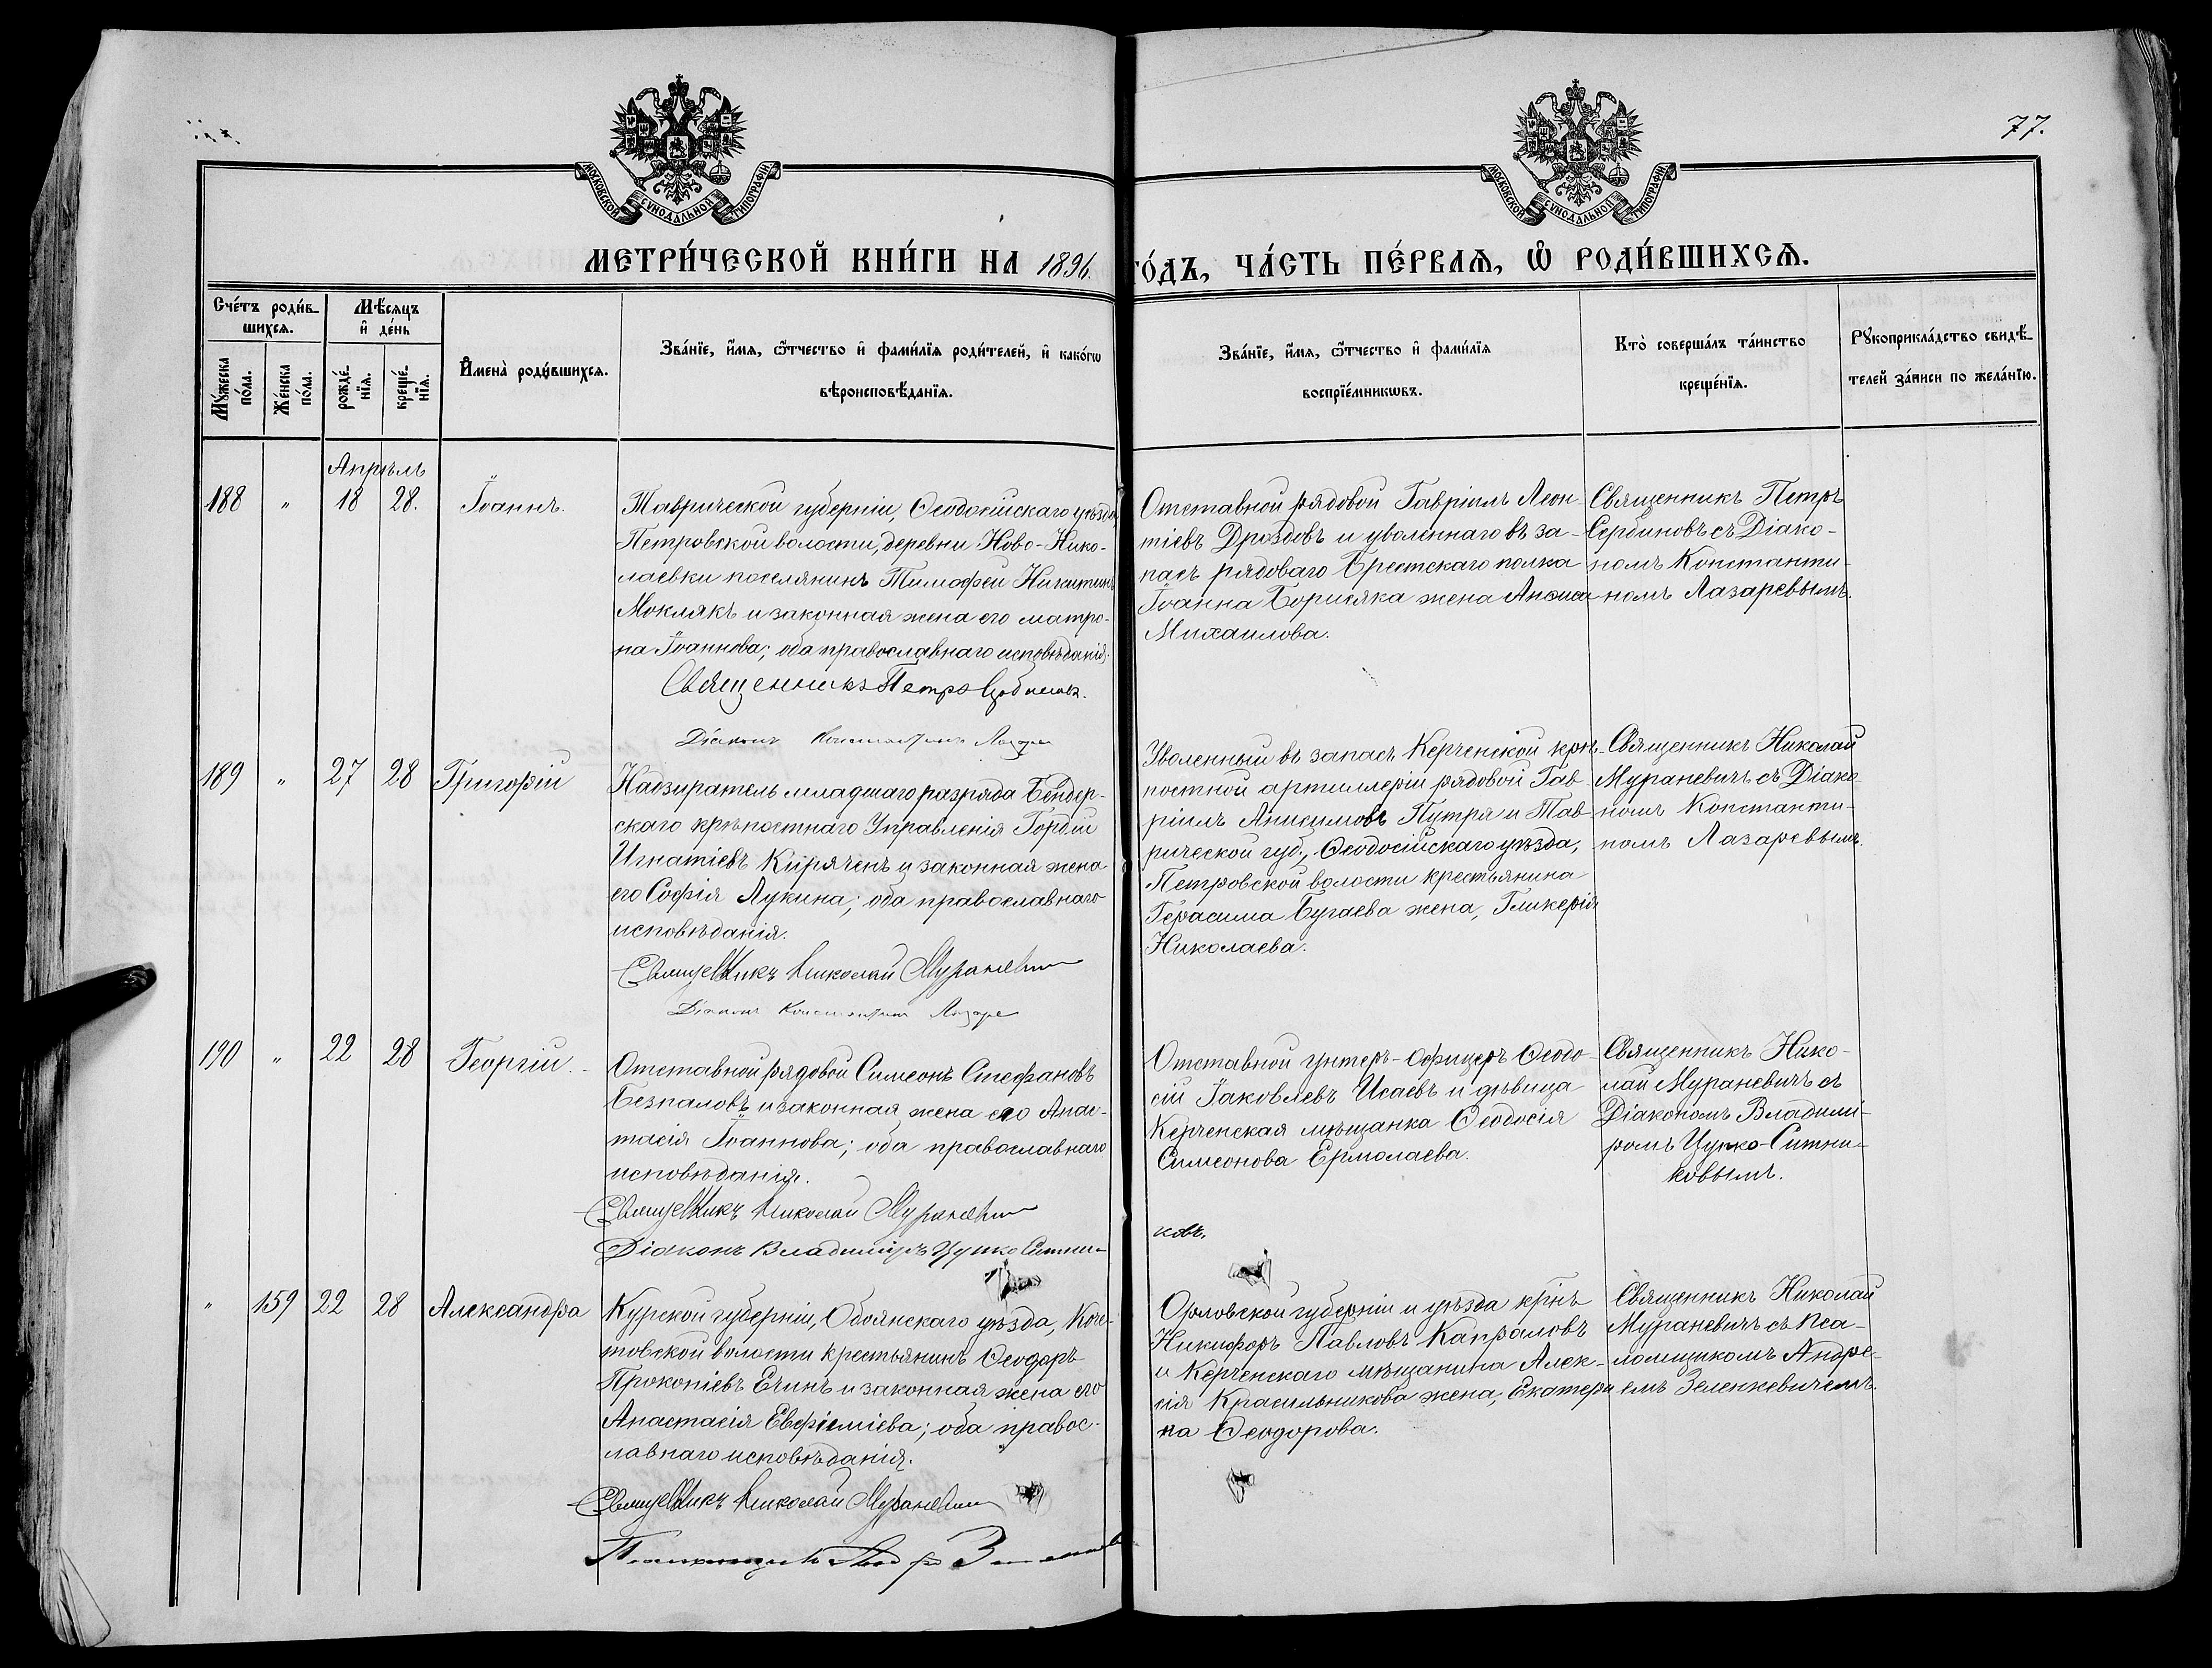 77.
МОСКОВСКОЙ СУНОДАЛЬНОЙ ТИПОГРАФІИ
МОСКОВСКОЙ СУНОДАЛЬНОЙ ТИПОГРАФІИ
МЕТРИ́ЧЕСКОЙ КНИ́ГИ НА 1896 ГО́ДЪ, ЧА́СТЬ ПЕ́РВАѦ, Ѡ҆ РОДИ́ВШИХСѦ.
Сче́тъ роди́в-
шихсѧ.
Мꙋ́жеска по́ла.
Же́нска по́ла.
Мѣ́сѧцъ
и҆ де́нь
рожде́-нїѧ.
креще́-нїѧ.
И҆мена̀ роди́вшихсѧ.
Зва́нїе, и҆́мѧ, ѻ҆́тчество и҆ фами́лїѧ роди́телей, и҆ како́гѡ
вѣроисповѣ́данїѧ.
Зва́нїе, и҆́мѧ, ѻ҆́тчество и҆ фами́лїѧ
воспрїе́мникѡвъ.
Кто̀ соверша́лъ та́инство
креще́нїѧ.
Рꙋкоприкла́дство свидѣ́-
телей за́писи по жела́нїю.
Апрѣль
188 " 18 28. Іоаннъ.
Таврической губерніи, Ѳеодосійскаго уѣзда
Петровской волости, деревни Ново-Нико-
лаевки поселянинъ Тимофей Никитинъ
Моклякъ и законная жена его матро-
на Іоаннова; оба православнаго исповѣданія.
Священникъ Петръ Сербиновъ.
Діаконъ Константинъ Лазаре
Отставной рядовой Гавріилъ Леон-
тіевъ Дроздовъ и уволеннаго въ за-
пасъ рядоваго Брестскаго полка
Іоанна Борисяка жена Анисья
Михаилова.
Священникъ Петръ
Сербиновъ съ Діако-
номъ Константи-
номъ Лазаревымъ.
189 " 27 28 Григорій
Надзиратель младшаго разряда Бендер-
скаго крѣпостнаго Управленія Гордій
Игнатіевъ Киряченъ и законная жена
его Софія Лукина; оба православнаго
исповѣданія.
Священникъ Николай Мураневичъ
Діаконъ Константинъ Лазаре
Уволенный въ запасъ Керченской крѣ-
постной артиллеріи рядовой Гав-
ріилъ Анисимовъ Путря и Тав-
рической губ., Ѳеодосійскаго уѣзда,
Петровской волости крестьянина
Герасима Бугаева жена, Гликерія
Николаева.
Священникъ Николай
Мураневичъ съ Діако-
номъ Константи-
номъ Лазаревымъ.
190 " 22 28 Георгій.
Отставной рядовой Симеонъ Стефановъ
Безпаловъ и законная жена его Анас-
тасія Іоаннова; оба православнаго
исповѣданія.
Священникъ Николай Мураневичъ
Діаконъ Владиміръ Цупко Ситни-
ковъ.
Отставной унтеръ-офицеръ Ѳеодо-
сій Іаковлевъ Исаевъ и дѣвица
Керченская мѣщанка Ѳеодосія
Симеонова Ермолаева.
Священникъ Нико-
лай Мураневичъ съ
Діакономъ Владимі-
ромъ Цупко-Ситни-
ковымъ.
" 159 22 28 Александра
Курской губерніи, Обоянскаго уѣзда, Коче-
товской волости крестьянинъ Ѳеодоръ
Прокопіевъ Ечинъ и законная жена его
Анастасія Евфіміева; оба правос-
лавнаго исповѣданія.
Священникъ Николай Мураневичъ
Орловской губерніи и уѣзда крнъ
Никифоръ Павловъ Капраловъ
и Керченскаго мѣщанина Алек-
сія Красильникова жена, Екатери
на Ѳеодорова.
Священникъ Николай
Мураневичъ съ Пса-
ломщикомъ Андре-
емъ Зеленкевичемъ.